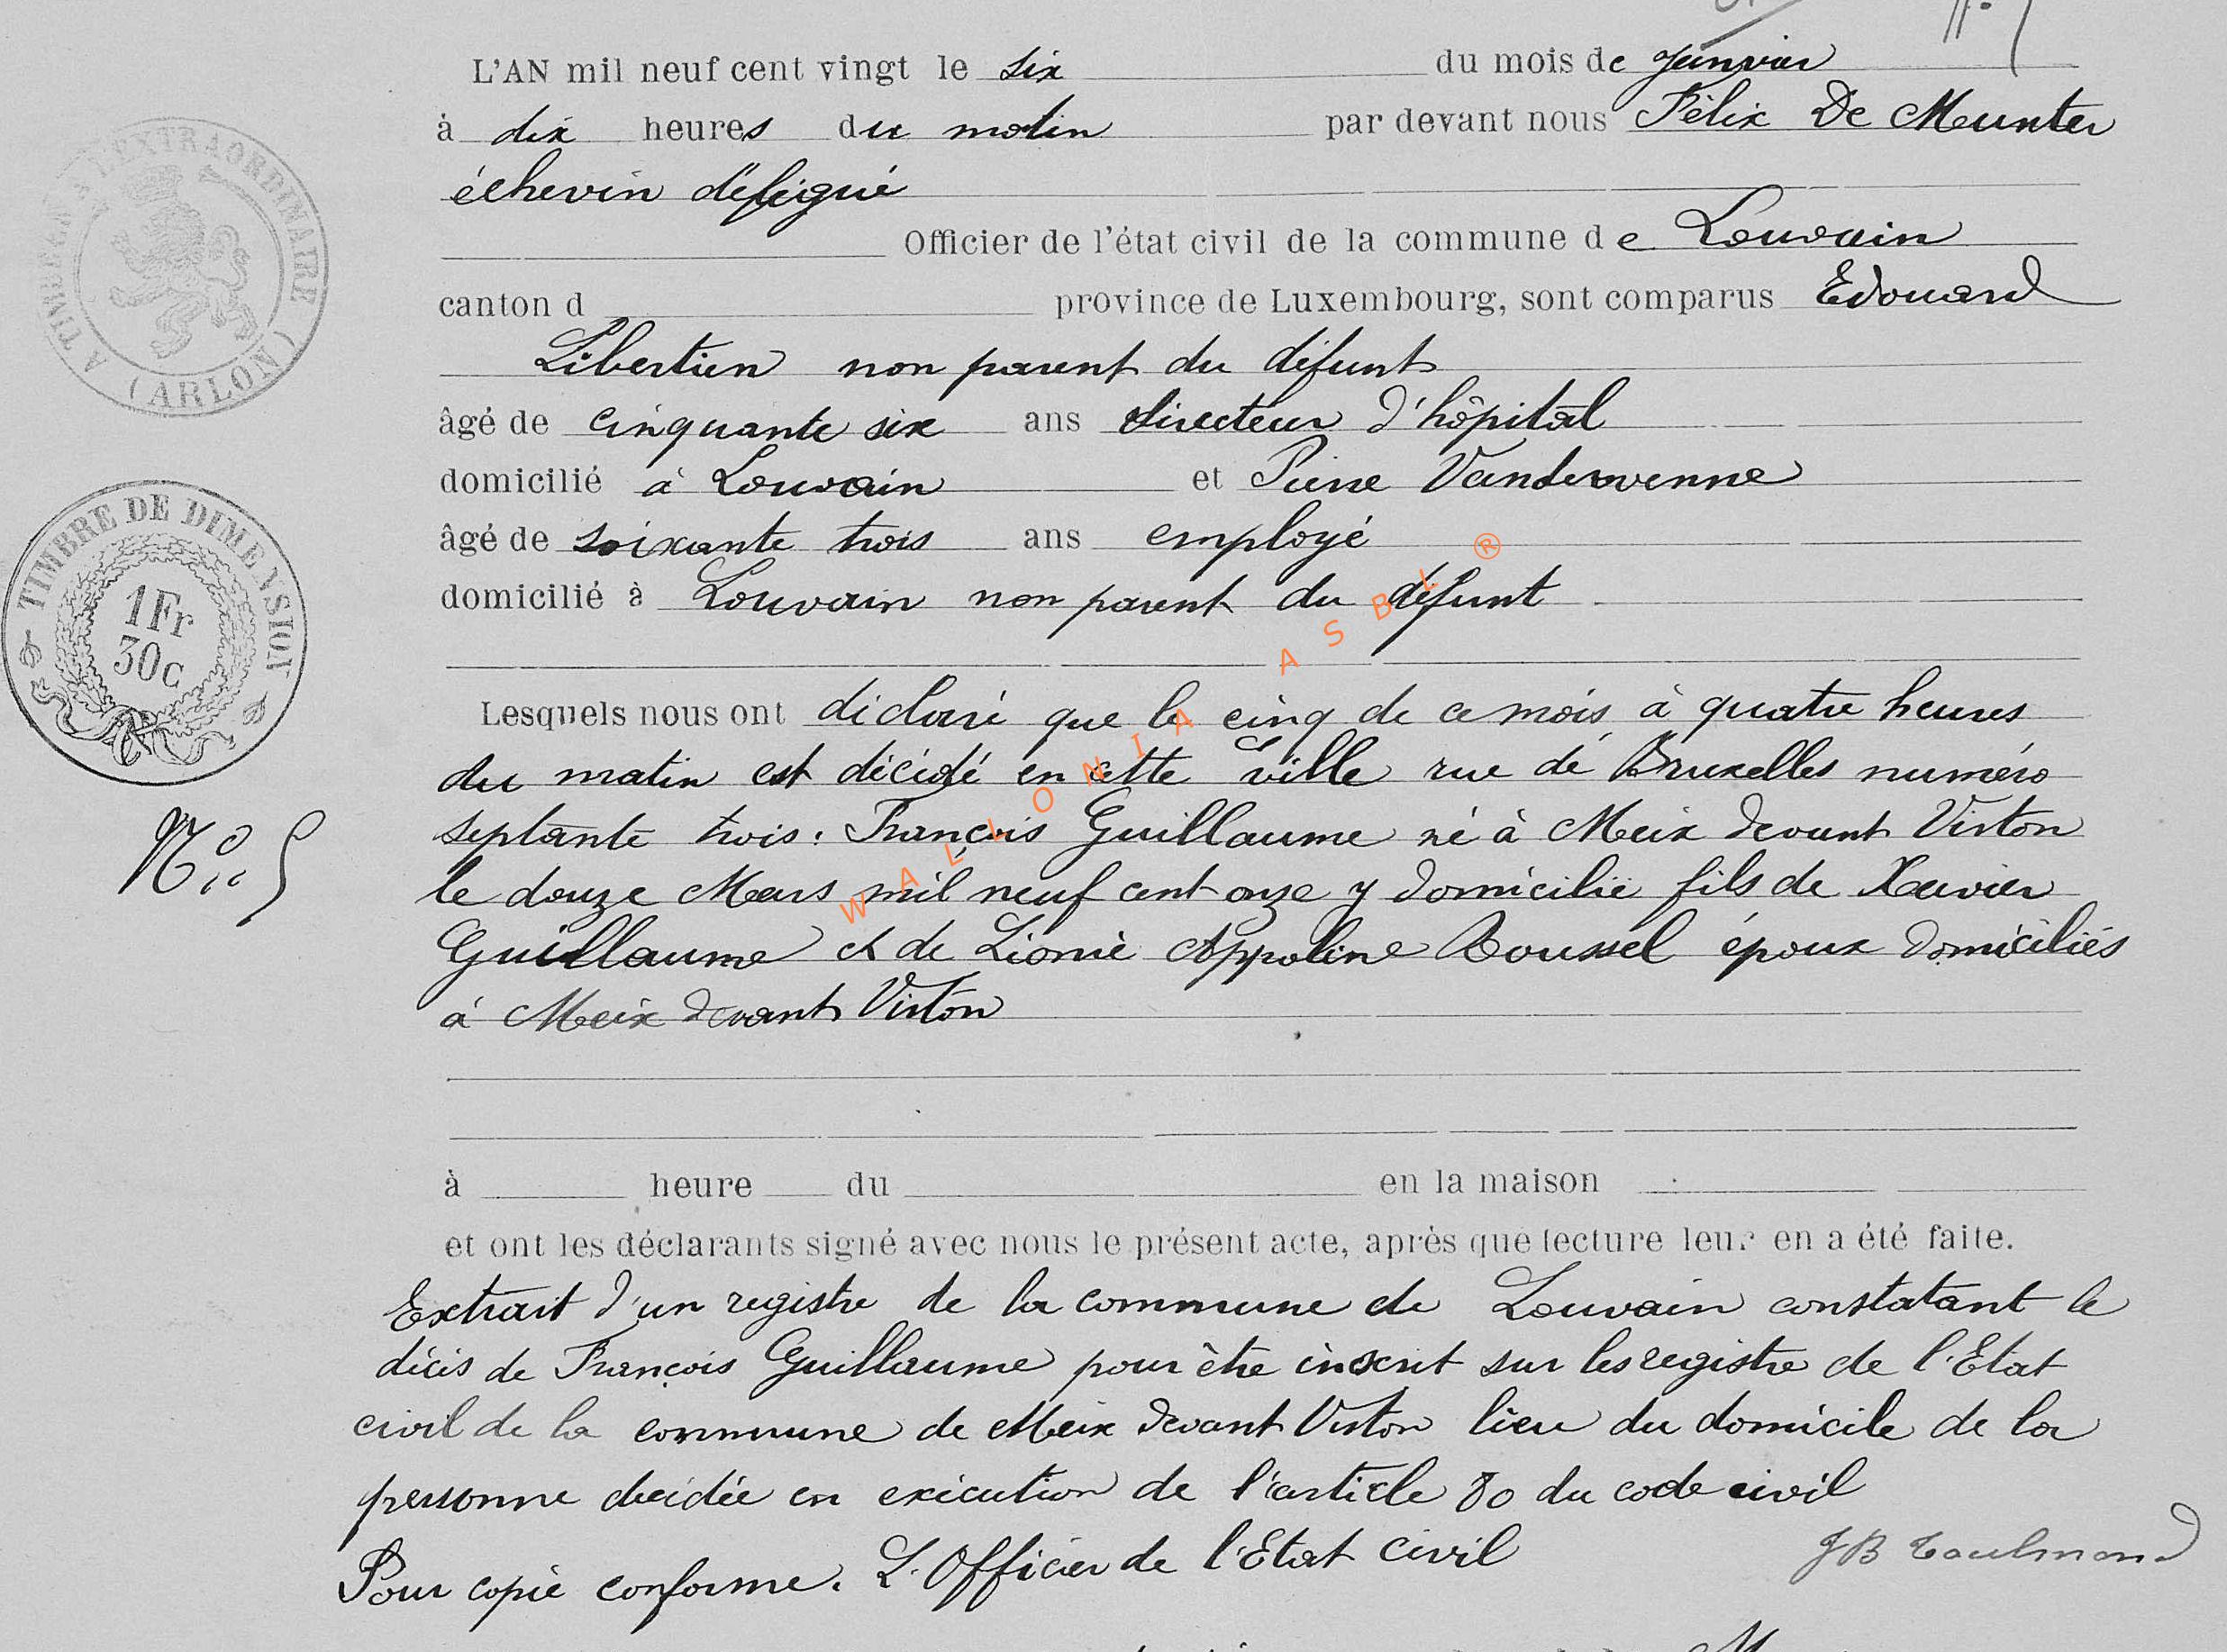 L'AN mil neuf cent vingt le six du mois de janvier
à dix heures du matin par devant nous Félix De Munter
échevin délégué
Officier de l'état civil de la commune de Louvain
canton d province de Luxembourg, sont comparus Edouard
Libertien non parent du défunt
âgé de cinquante six ans directeur d'hôpital
domicilié à Louvain et Pierre Vandervenne
âgé de soixante trois ans employé
domicilié à Louvain non parent du défunt
Lesquels nous ont déclaré que le cinq de ce mois à quatre heures
du matin est décédé en cette ville rue de Bruxelles numéro
septante trois : François Guillaume né à Meix devant Virton
le douze Mars mil neuf cent onze y domicilié fils de Xavier
Guillaume et de Lionie Appoline Roussel époux domiciliés
à Meix devant Virton
à heure du en la maison
et ont les déclarants signé avec nous le présent acte, après que lecture leur en a été faite.
Extrait d'un registre de la commune de Louvain constatant le
décès de François Guillaume pour être inscrit sur les registre de l'Etat
civil de la commune de Meix devant Virton lieu du domicile de la
personne decédée en exécution de l'article 80 du code civil
Pour copie conforme. L'Officier de l'Etat civil
JB
A TIMBRER A L'EXTRAORDINAIRE (ARLON)
TIMBRE DE DIMENSION
1Fr
30c
N° 5
WALLONIA ASBL ®